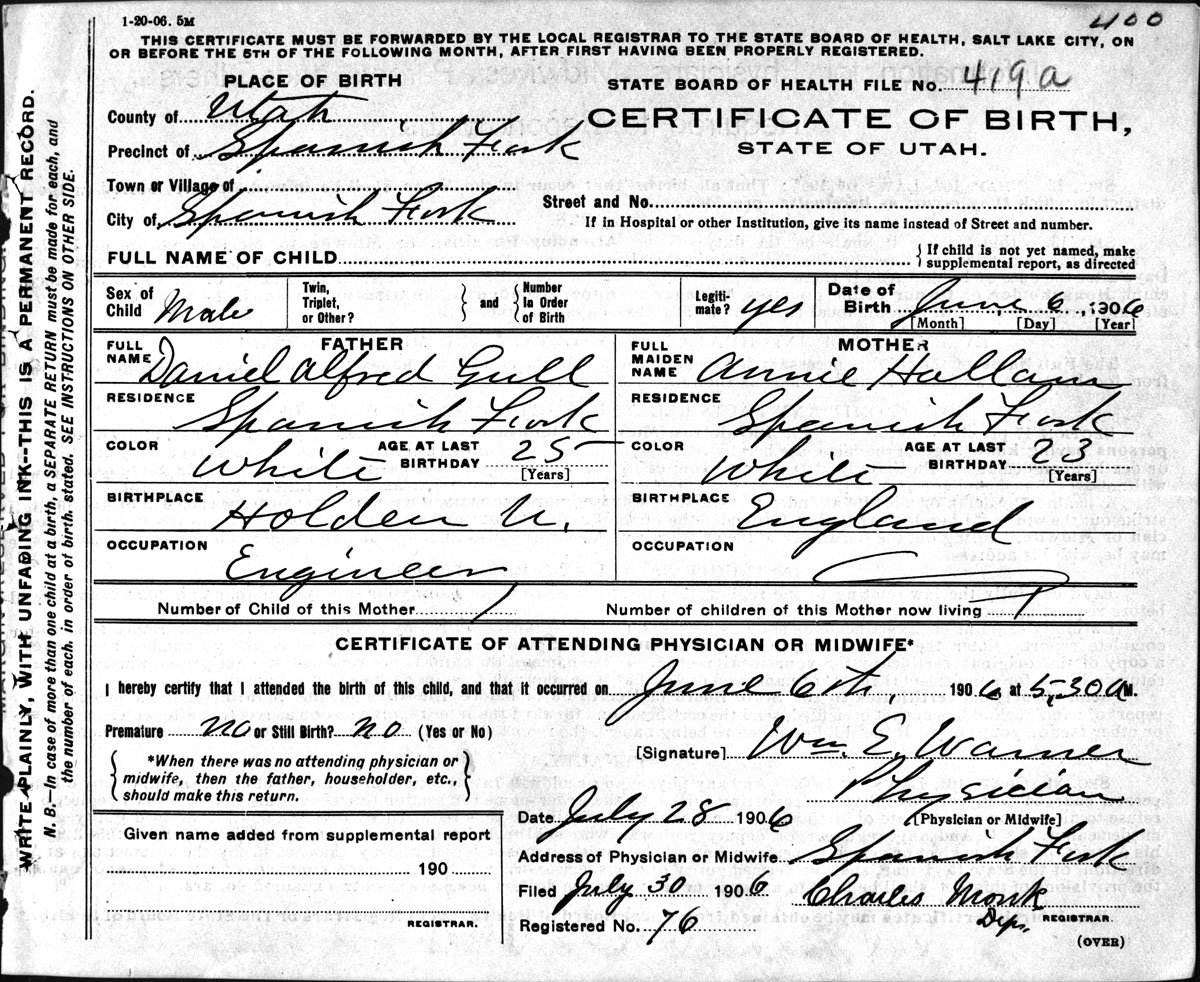 1-20-06. 5M
400
THIS CERTIFICATE MUST BE FORWARDED BY THE LOCAL REGISTRAR TO THE STATE BOARD OF HEALTH, SALT LAKE CITY, ON
OR BEFORE THE 5TH OF THE FOLLOWING MONTH, AFTER FIRST HAVING BEEN PROPERLY REGISTERED.
WRITE PLAINLY, WITH UNFADING INK--THIS IS A PERMANENT RECORD.
N. B.—In case of more than one child at a birth, a SEPARATE RETURN must be made for each, and
the number of each, in order of birth, stated. SEE INSTRUCTIONS ON OTHER SIDE.
PLACE OF BIRTH
County of Utah
Precinct of Spanish Fork
Town or Village of
City of Spanish Fork
STATE BOARD OF HEALTH FILE No. 419a
CERTIFICATE OF BIRTH,
STATE OF UTAH.
Street and No.
If in Hospital or other Institution, give its name instead of Street and number.
FULL NAME OF CHILD
{ If child is not yet named, make
supplemental report, as directed
Sex of Child Male
Twin, Triplet, or Other? } and { Number In Order of Birth
Legiti-mate? yes
Date of Birth June 6, 1906
[Month] [Day] [Year]
FATHER
FULL NAME Daniel Alfred Gull
RESIDENCE Spanish Fork
COLOR White AGE AT LAST BIRTHDAY 25 [Years]
BIRTHPLACE Holden U.
OCCUPATION Engineer
MOTHER
FULL MAIDEN NAME Annie Hallam
RESIDENCE Spanish Fork
COLOR White AGE AT LAST BIRTHDAY 23 [Years]
BIRTHPLACE England
OCCUPATION
Number of Child of this Mother 1 Number of children of this Mother now living 1
CERTIFICATE OF ATTENDING PHYSICIAN OR MIDWIFE*
I hereby certify that I attended the birth of this child, and that it occurred on June 6th, 1906 at 5,30 a M.
Premature no or Still Birth? no (Yes or No)
{ *When there was no attending physician or
midwife, then the father, householder, etc.,
should make this return. }
[Signature] Wm E, Warner
Physician
[Physician or Midwife]
Date July 28 1906
Address of Physician or Midwife Spanish Fork
Filed July 30 1906 Charles Monk
Dep. REGISTRAR.
Registered No. 76
(OVER)
Given name added from supplemental report
190
REGISTRAR.